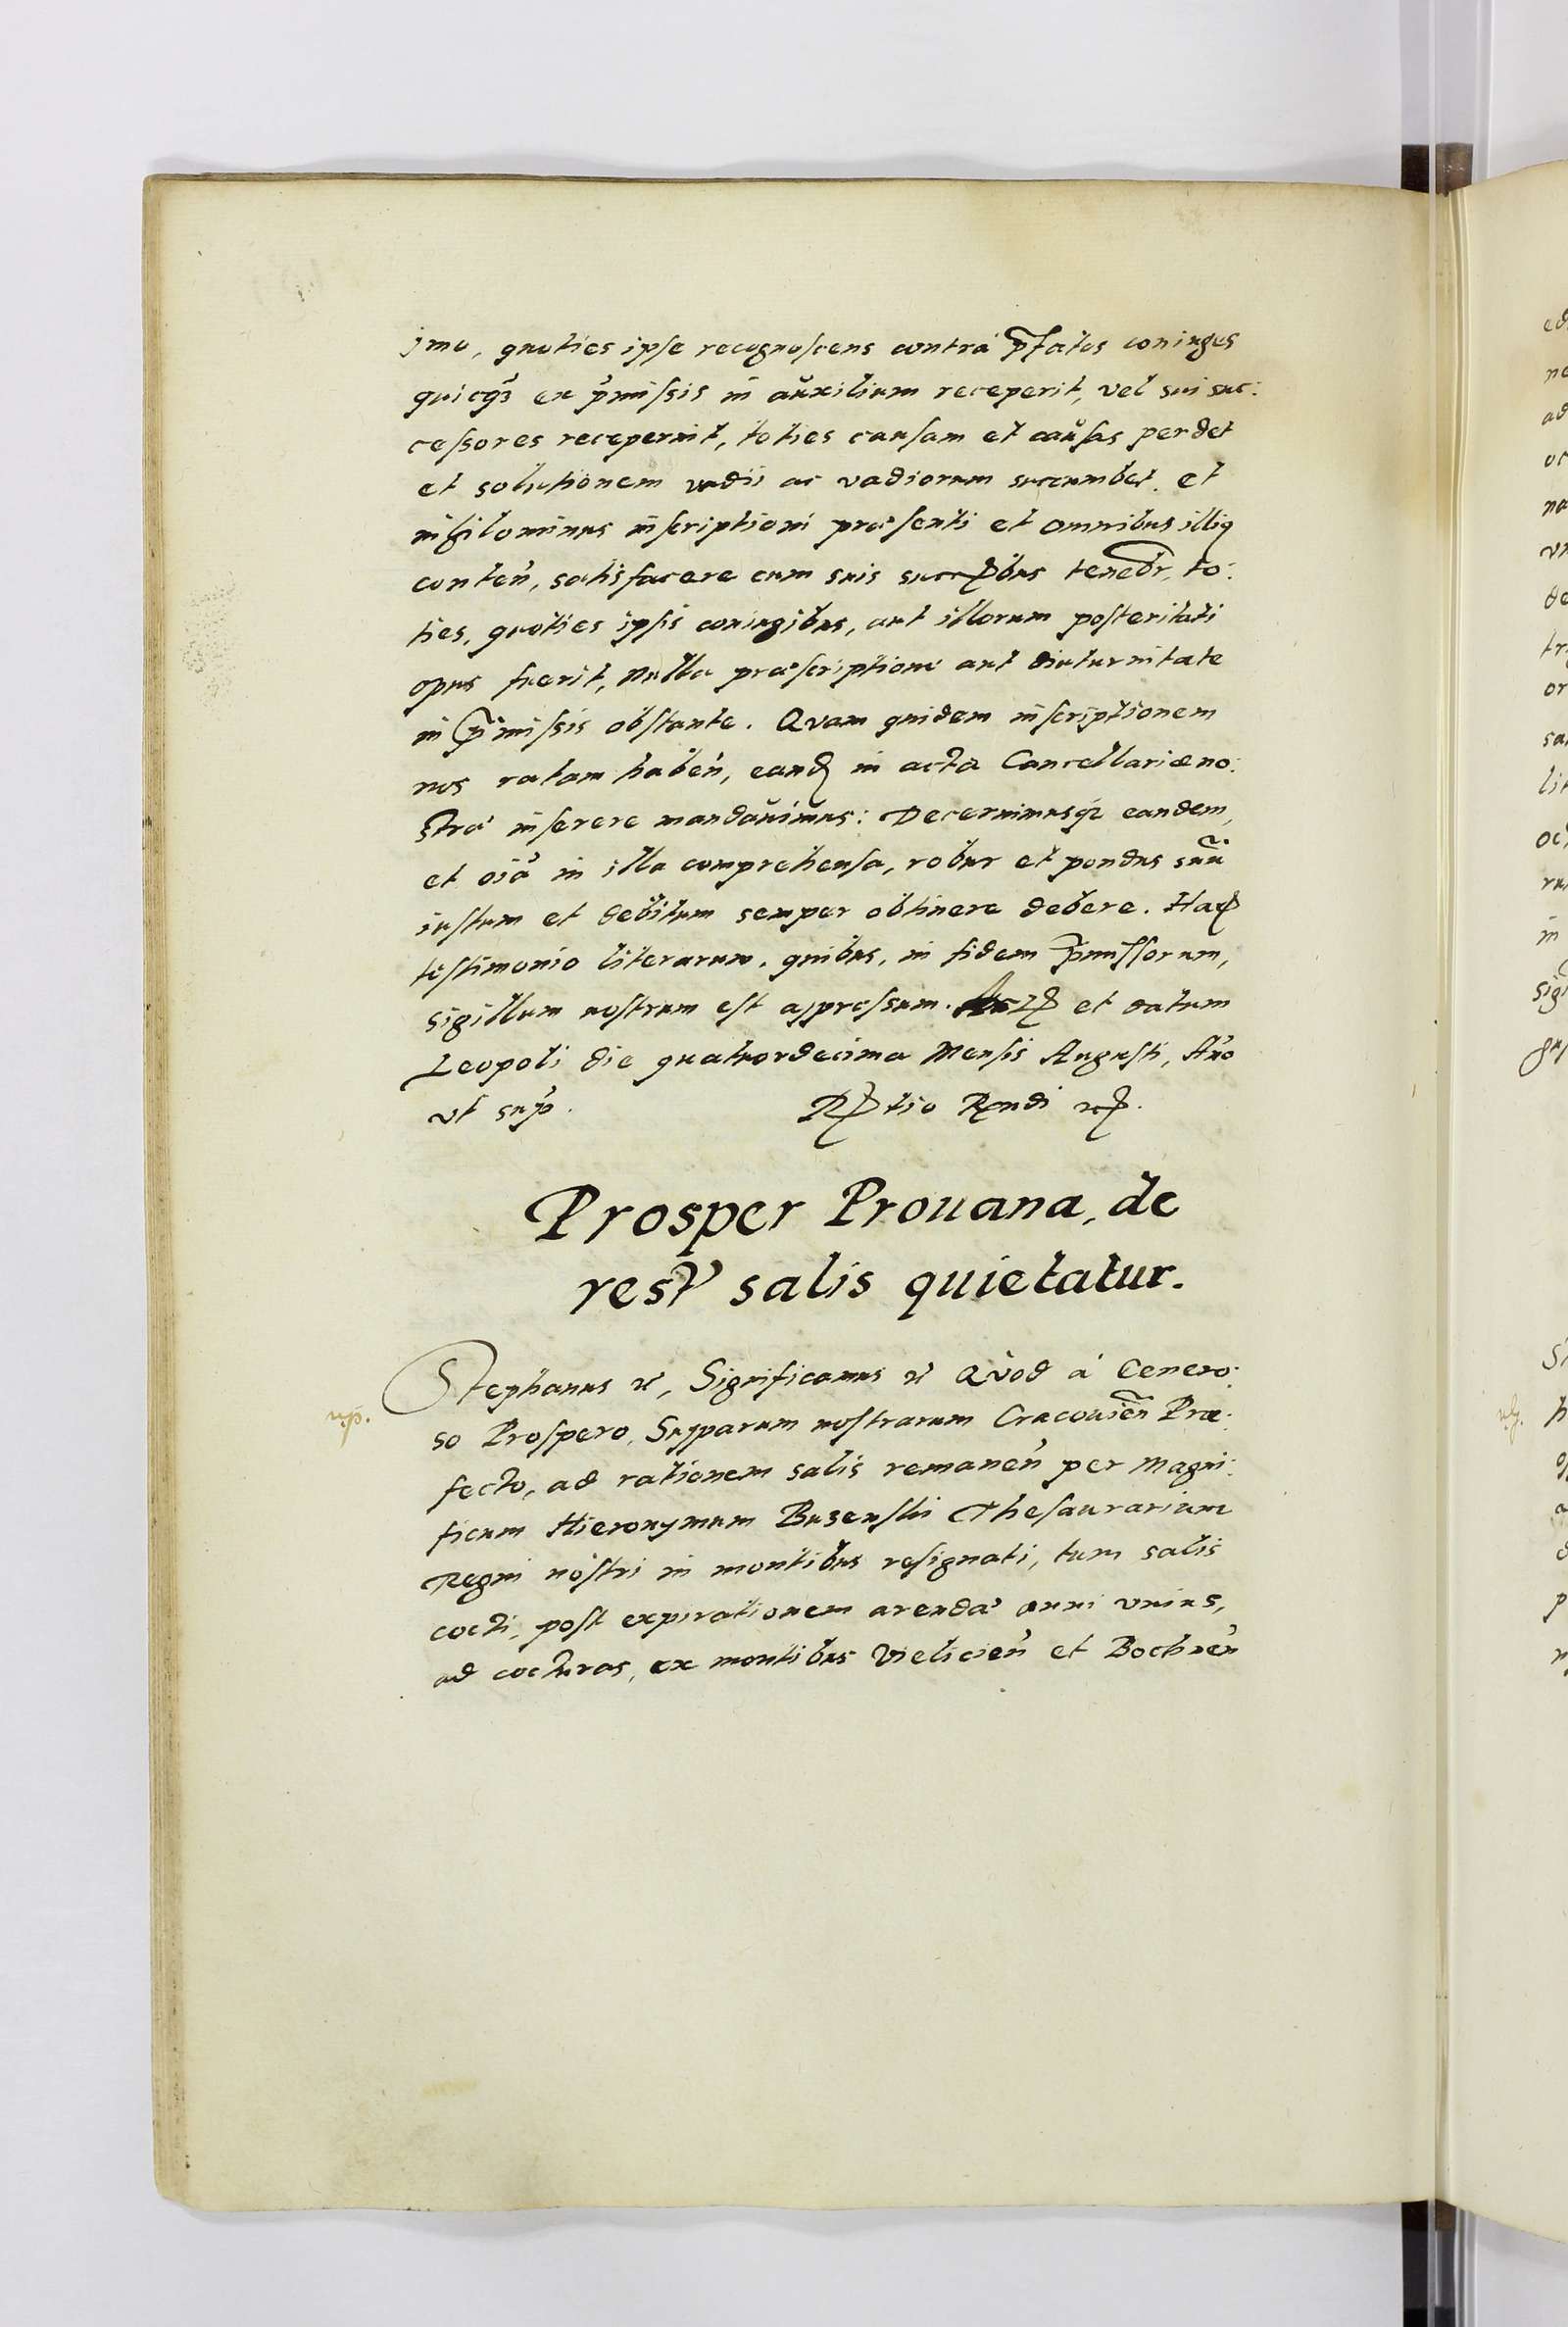 jmo, quoties ipse recognoscens contra p̃fatos coniuges
quicq̃ȝ ex p̃missis in auxilium receperit, vel sui suc:
cessores receperint, toties causam et causas perdet
et solutionem vadii ac vadiorum succumbet. et
nihilominus inscriptioni præsenti et omnibus illiq
conteñ, satisfacere cum suis succribus tenebr, to:
ties, quoties ipsis coniugibus, aut illorum posteritati
opus fuerit, nulla præscriptione aut diuturnitate
in p̃missis obstante. Quam quidem inscriptionem
nos ratam habeñ, eand in acta Cancellariæ no:
stræ inserere mandauimus: Decernimusqȝ eandem,
et oı̃a in illa comprehensa, robur et pondus suũ
iustum et debitum semper obtinere debere. Har
testimonio literarum, quibus, in fidem p̃missorum,
sigillum nostrum est appressum. et datum
Leopoli die quatuordecima Mensis Augusti, Año
vt sup̃.
Rtio Rndi
Prosper Prouana, de
rest salis quietatur.
Stephanus ꝛc, Significamus ꝛc Quod á Genero:
np.
so Prospero, Supparum nostrarum Cracouieñ Præ:
fecto, ad rationem salis remaneñ per Magni:
ficum Hieronymum Busenski Thesaurarium
Regni nostri in montibus resignati, tum salis
cocti, post expirationem arendæ anni vnius,
ad cocturas, ex montibus Vielicieñ et Bochneñ